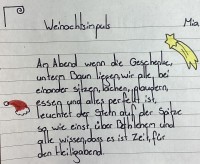 Weihnachtsimpuls
Mia
Am Abend wenn die Geschenke,
unterm Baum liegen, wir alle, bei
einander sitzen, lachen, plaudern,
essen und alles perfekt ist,
leuchtet der Stern auf der Spitze
so wie einst, über Bethlehem und
alle wissen, dass es ist Zeit, für
den Heiligabend.